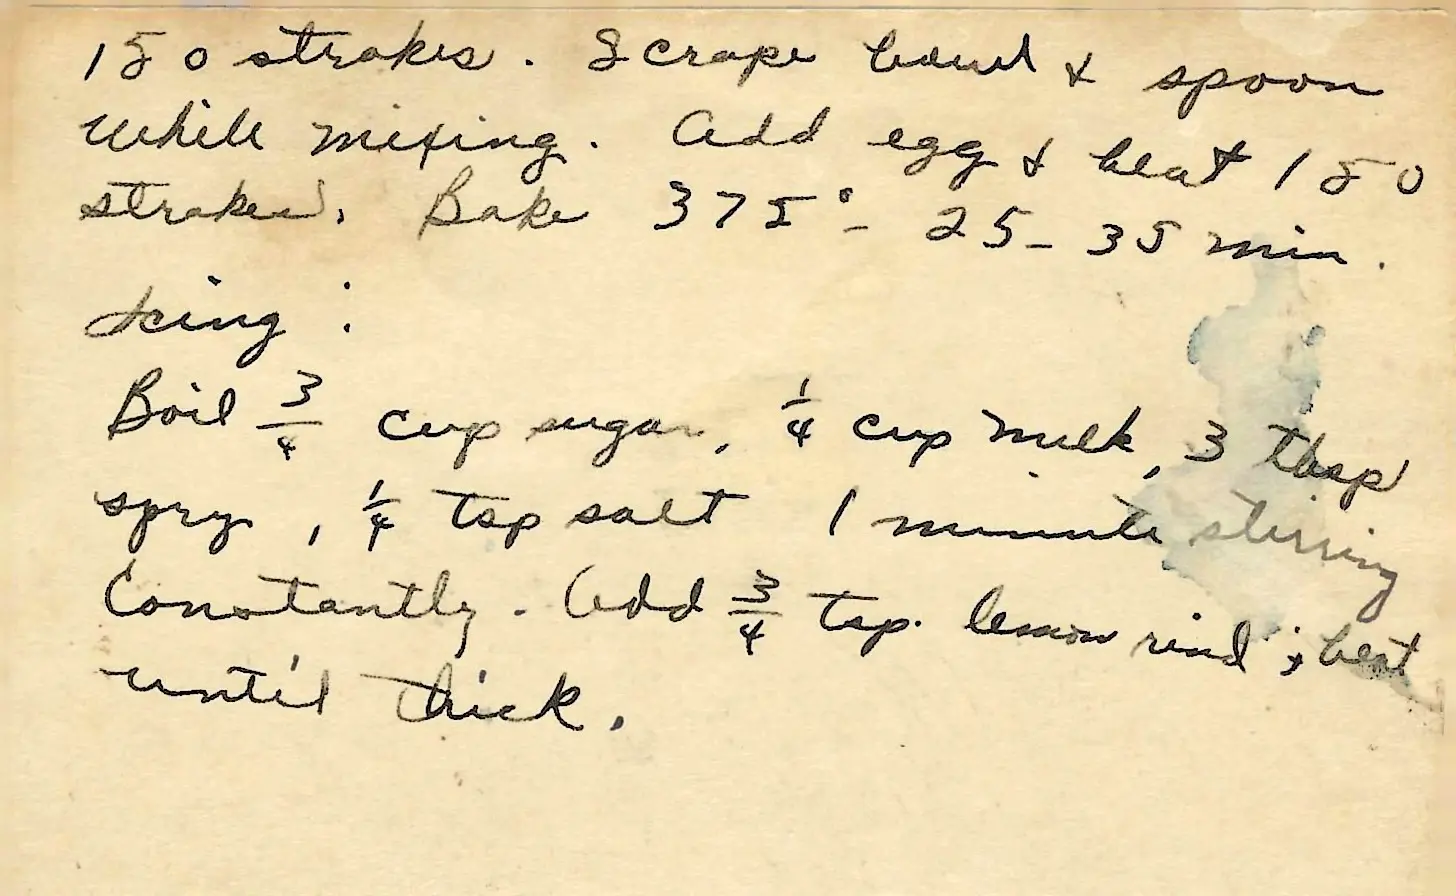 150 strokes. Scrape bowl & spoon
while mixing. Add egg & beat 150
strokes. Bake 375° - 25-35 min.
Icing :
Boil 3/4 cup sugar, 1/4 cup milk, 3 tbsp
spry, 1/4 tsp salt 1 minute stirring
Constantly. Add 3/4 tsp. lemon rind; beat
until thick.